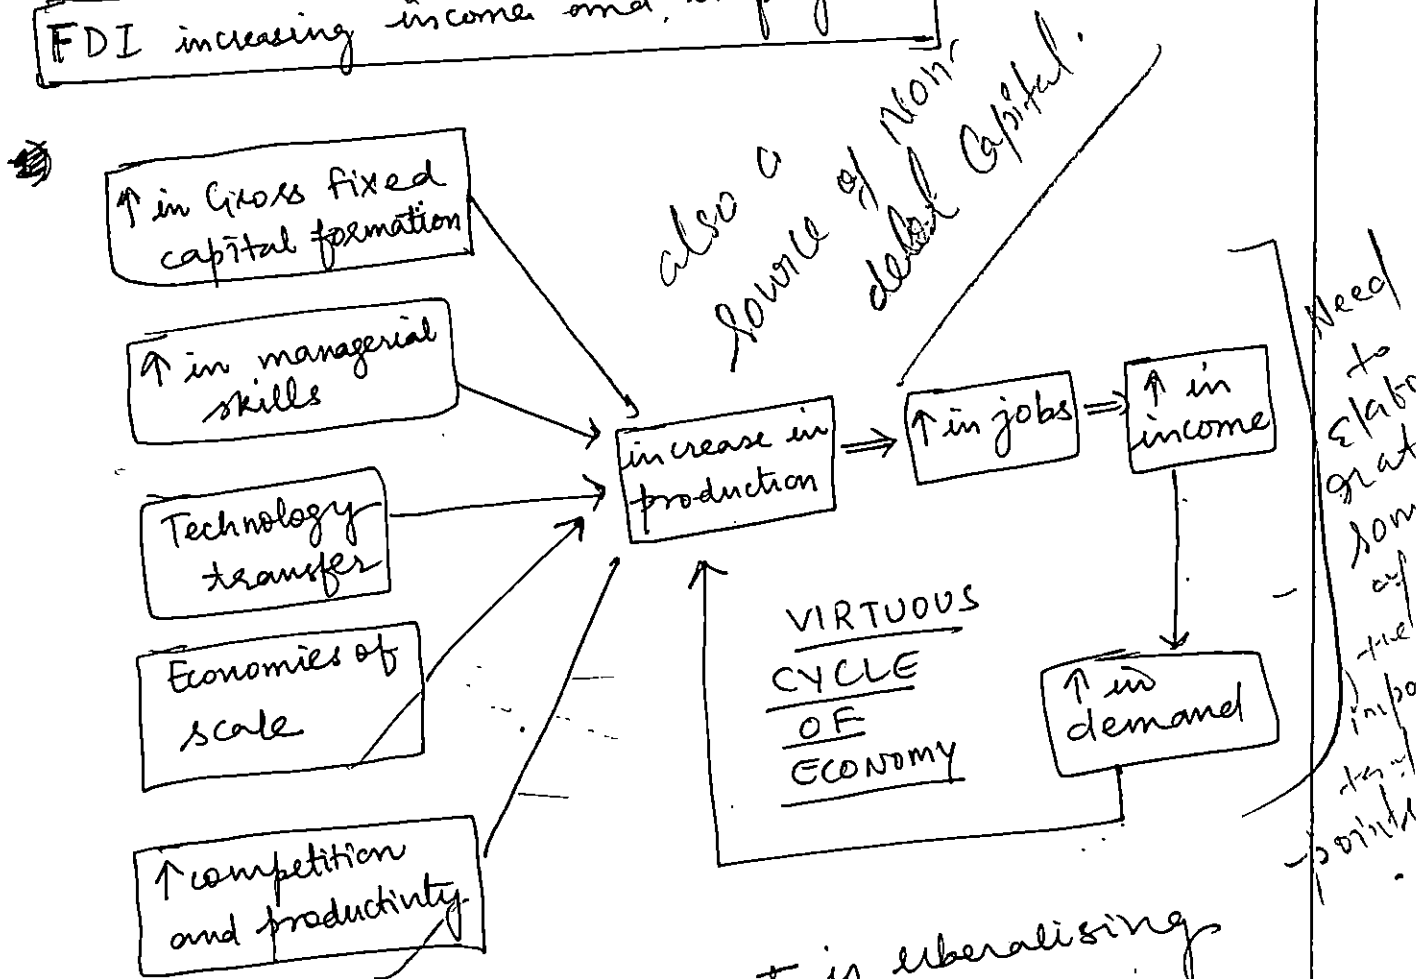 FDI increasing income and
↑ in Gross fixed
capital formation
↑ in managerial
skills
Technology
transfer
Economies of
scale
↑ competition
and productivity
also a
source of Non-
debt Capital.
increase in
production
↑ in jobs
↑ in
income
↑ in
demand
VIRTUOUS
CYCLE
OF
ECONOMY
Need
to
some
of
the
points
is liberalising